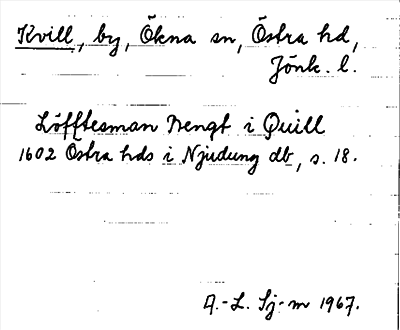 Kvill, by, Ökna sn, Östra hd,
Jönk. l.
Löfftesman Bengt i Quill
1602 Östra hds i Njudung db, s. 18.
A.-L. Sj-m 1967.